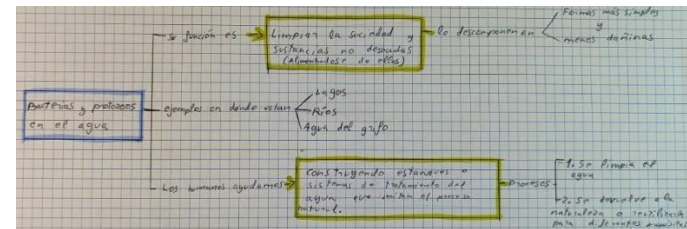 Bacterias y protozoos
en el agua
su función es
Limpiar la suciedad y
sustancias no deseadas
(Alimentandose de ellas)
lo descomponen en
Formas más simples
y
menos dañinas
ejemplos en donde estan
Lagos
Ríos
Agua del grifo
Los humanos ayudamos
Construyendo estanques o
sistemas de tratamiento del
agua que imitan el proceso
natural.
Procesos
1. Se limpia el
agua
2. Se devuelve a la
naturaleza o reutilizarla
para diferentes